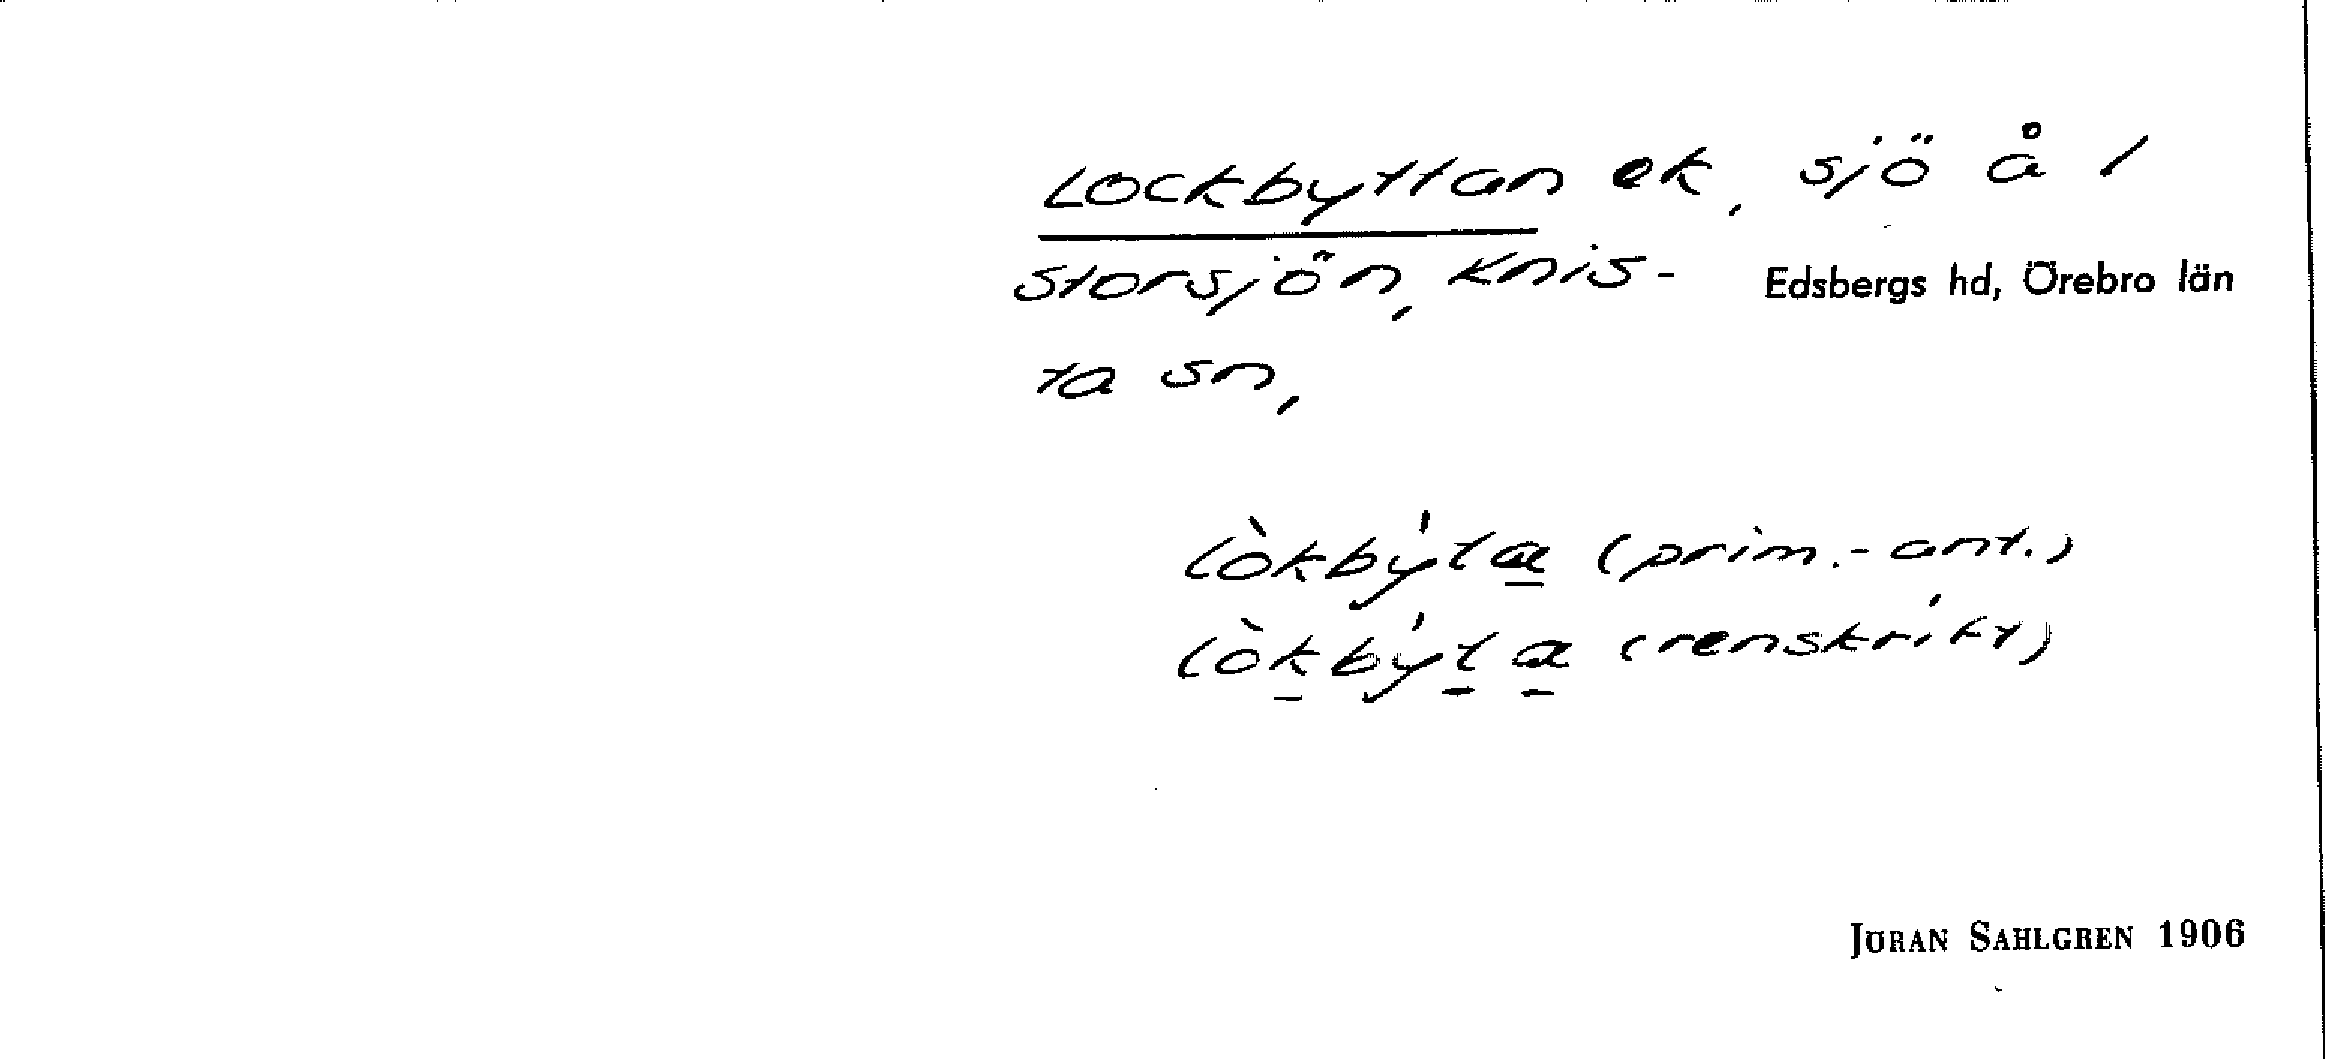 Lockbyttan ek, sjö å l
Storsjön, Knis- Edsbergs hd, Örebro län
ta sn,
lòkby̍ta̲ (prim.-ant.)
lòk̲by̍t̲a̲ (renskrift)
JÖRAN SAHLGREN 1906